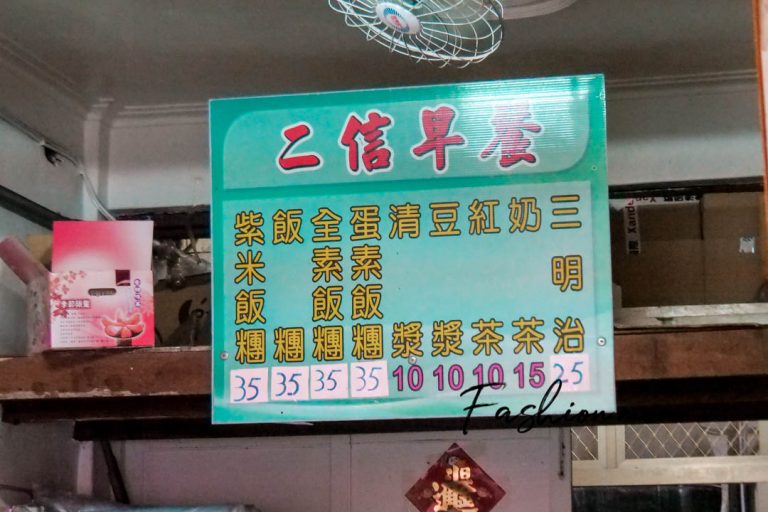 二信早餐
紫米飯糰 35
飯糰 35
全素飯糰 35
蛋素飯糰 35
清漿 10
豆漿 10
紅茶 10
奶茶 15
三明治 25
Fashion